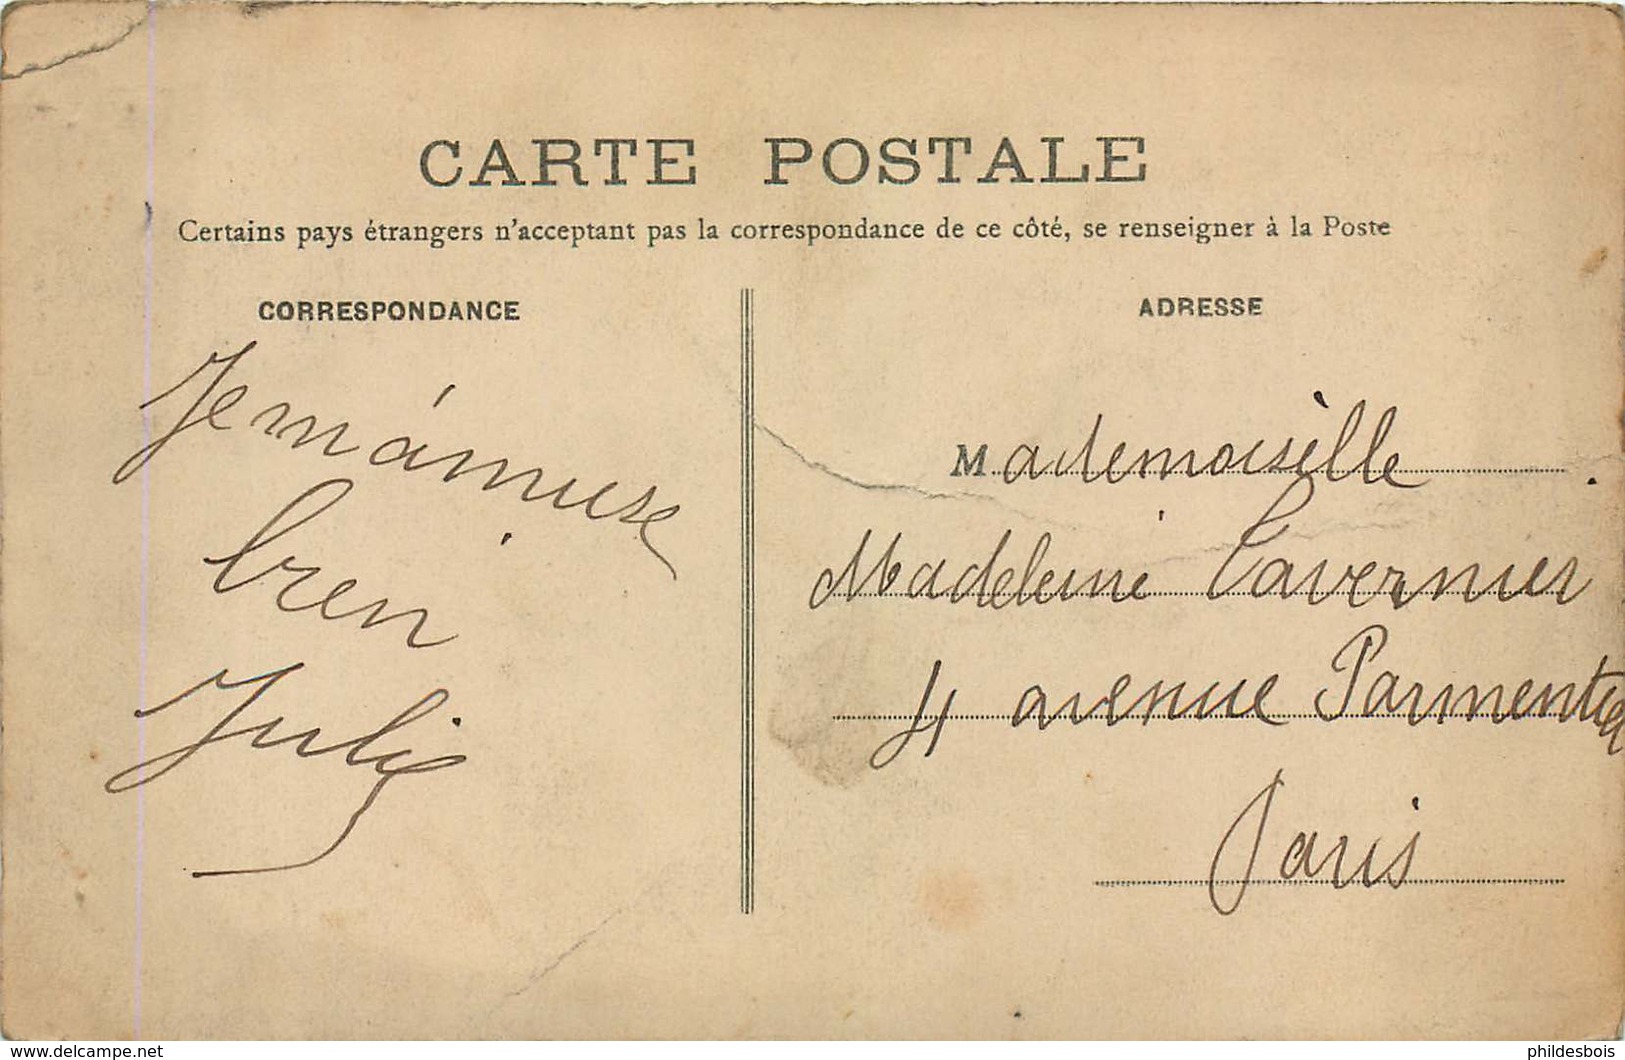 CARTE POSTALE
Certains pays étrangers n'acceptant pas la correspondance de ce côté, se renseigner à la Poste
CORRESPONDANCE
Je m'amuse
bien
Julie
ADRESSE
Mademoiselle
Madeleine Tavernier
4 avenue Parmentier
Paris
www.delcampe.net
phildesbois